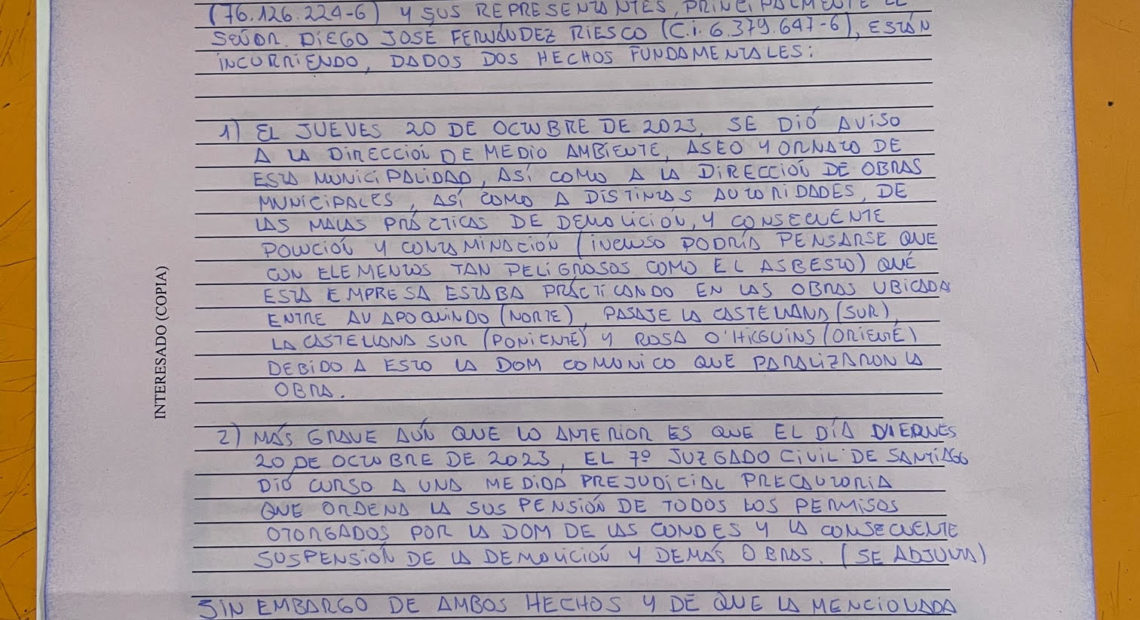 (76.126.224-6) Y SUS REPRESENTANTES, PRINCIPALMENTE EL
SEÑOR. DIEGO JOSÉ FERNÁNDEZ RIESCO (C.I. 6.379.647-6), ESTÁN
INCURRIENDO, DADOS DOS HECHOS FUNDAMENTALES:
1) EL JUEVES 20 DE OCTUBRE DE 2023, SE DIÓ AVISO
A LA DIRECCIÓN DE MEDIO AMBIENTE, ASEO Y ORNATO DE
ESTA MUNICIPALIDAD, ASÍ COMO A LA DIRECCIÓN DE OBRAS
MUNICIPALES, ASÍ COMO A DISTINTAS AUTORIDADES, DE
LAS MALAS PRÁCTICAS DE DEMOLICIÓN, Y CONSECUENTE
POLUCIÓN Y CONTAMINACIÓN (INCLUSO PODRÍA PENSARSE QUE
CON ELEMENTOS TAN PELIGROSOS COMO EL ASBESTO) QUÉ
ESTA EMPRESA ESTABA PRÁCTICANDO EN LAS OBRAS UBICADA
ENTRE AV APOQUINDO (NORTE), PASAJE LA CASTELLANA (SUR),
LA CASTELLANA SUR (PONIENTE) Y ROSA O'HIGGUINS (ORIENTE)
DEBIDO A ESTO LA DOM COMUNICO QUE PARALIZARON LA
OBRA.
2) MÁS GRAVE AÚN QUE LO ANTERIOR ES QUE EL DÍA VIERNES
20 DE OCTUBRE DE 2023, EL 7º JUZGADO CIVIL DE SANTIAGO
DIÓ CURSO A UNA MEDIDA PREJUDICIAL PRECAUTORIA
QUE ORDENA LA SUSPENSIÓN DE TODOS LOS PERMISOS
OTORGADOS POR LA DOM DE LAS CONDES Y LA CONSECUENTE
SUSPENSIÓN DE LA DEMOLICIÓN Y DEMÁS OBRAS. (SE ADJUNTA)
SIN EMBARGO DE AMBOS HECHOS Y DE QUE LA MENCIONADA
INTERESADO (COPIA)